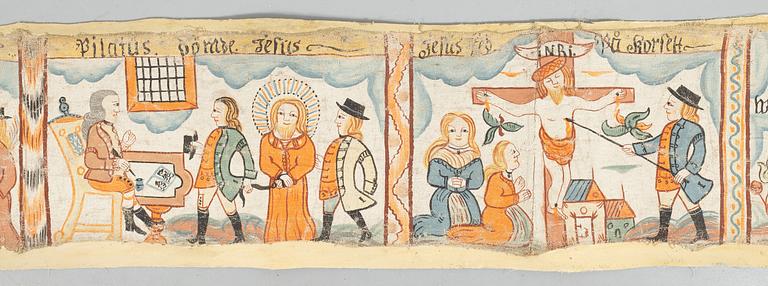 Pilatus. Dömde. Jesus
Jesus led. INRI. På Korsett